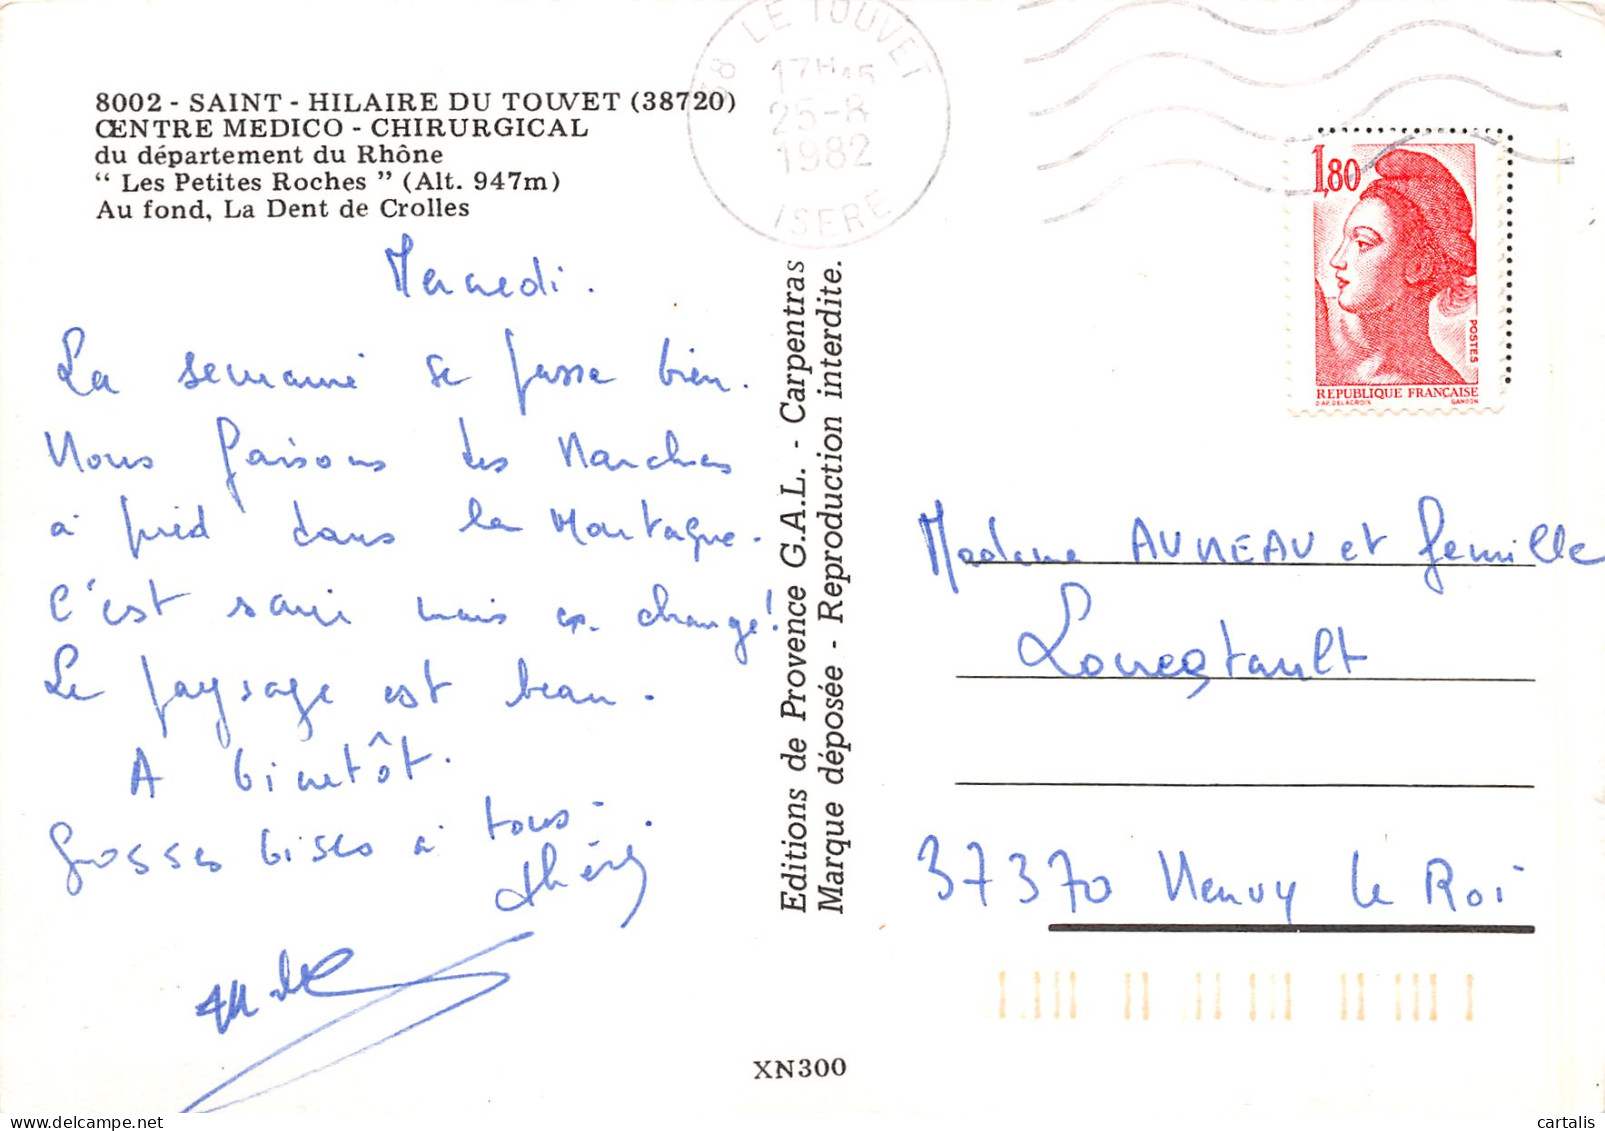 8002 - SAINT - HILAIRE DU TOUVET (38720)
CENTRE MEDICO - CHIRURGICAL
du département du Rhône
“ Les Petites Roches ” (Alt. 947m)
Au fond, La Dent de Crolles
38 LE TOUVET
17H45
25-8
1982
ISERE
1,80
POSTES
REPUBLIQUE FRANÇAISE
D'AP. DELACROIX GANDON
Mercredi.
La semaine se passe bien.
Nous faisons des Marches
à pied dans la Montagne.
C'est sain mais ça change!
Le paysage est beau.
A bientôt.
Grosses bises à tous.
Editions de Provence G.A.L. - Carpentras
Marque déposée - Reproduction interdite.
Madame AUNEAU et famille
37370 Neuvy le Roi
XN300
cartalis